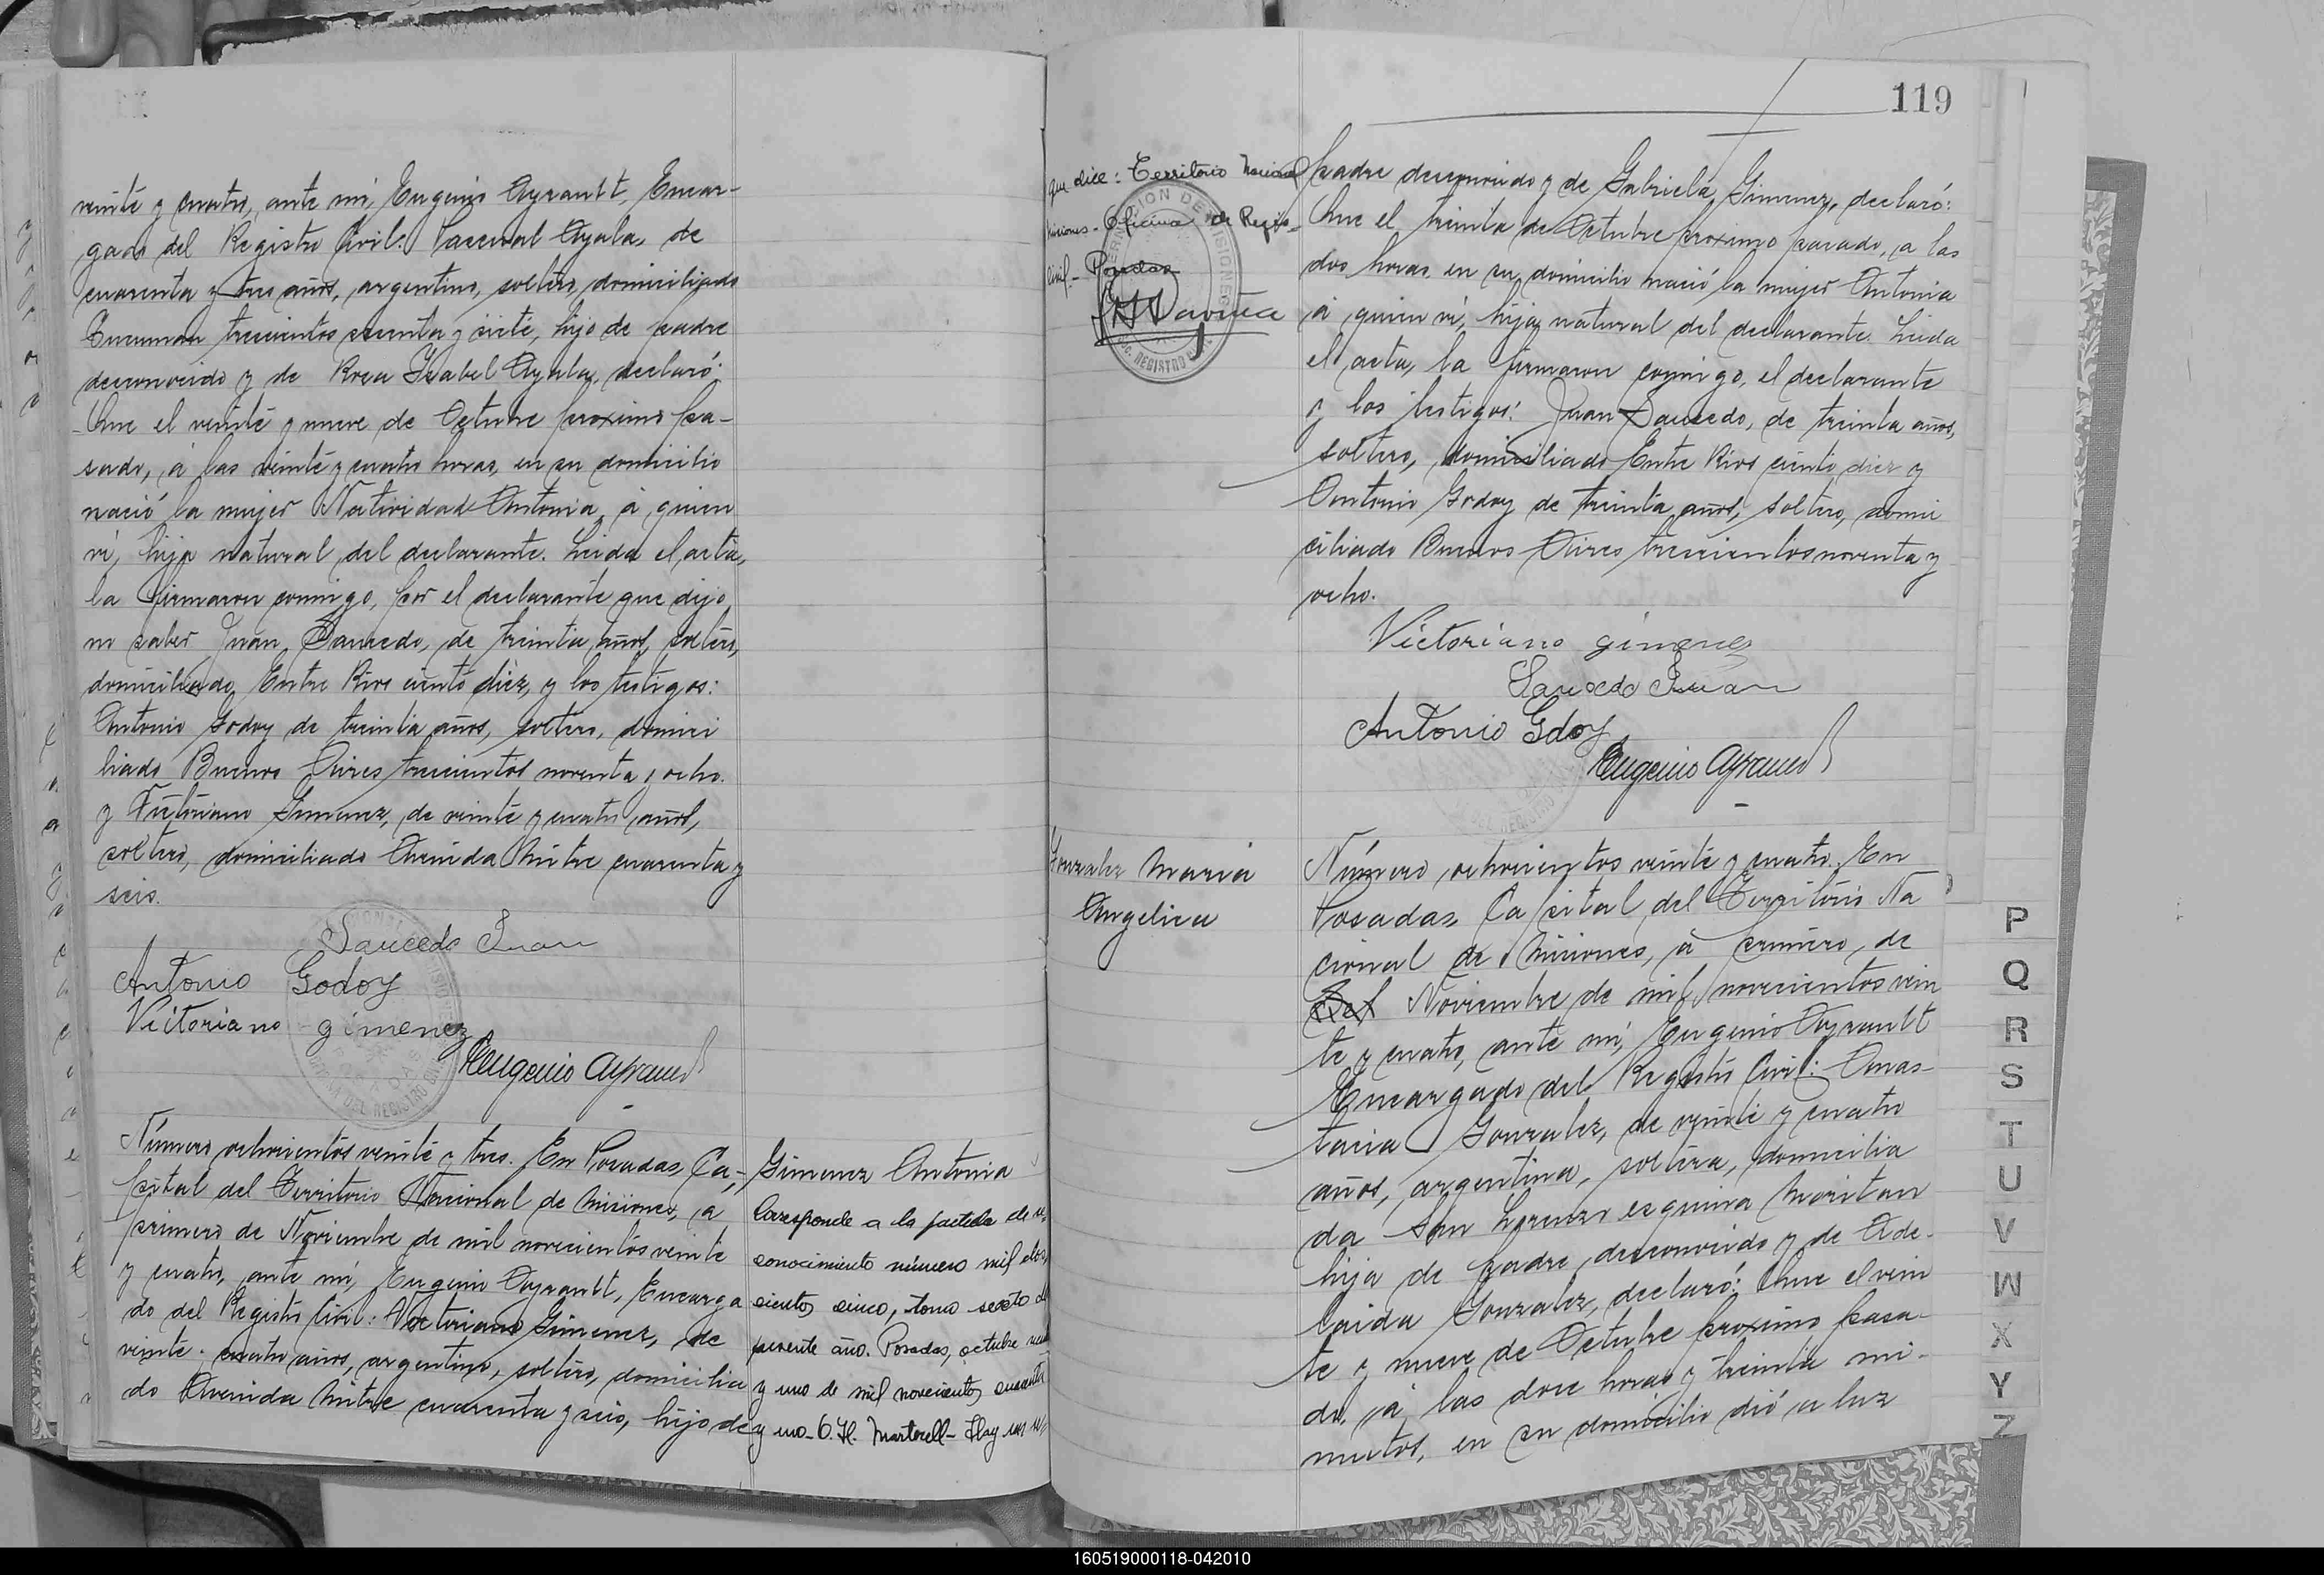 veinte y cuatro, ante mi, Eugenio Ayrault, Encar-
gado del Registro Civil: Pascual Ayala, de
cuarenta y tres años, argentino, soltero, domiciliado
Tucuman trescientos sesenta y siete, hijo de padre
desconocido y de Rosa Ysabel Ayala, declaró:
Que el veinte y nueve de Octubre proximo pa-
sado, á las veinte y cuatro horas, en su domicilio
nació la mujer Natividad Antonia, á quien
ví, hija natural del declarante. Leida el acta,
la firmaron comigo, por el declarante que dijo
no saber Juan Saucedo, de treinta años, soltero,
domiciliado Entre Rios ciento diez, y los testigos:
Antonio Godoy de treinta años, soltero, domici
liado Buenos Aires trescientos noventa y ocho.
y Victoriano Gimenez, de veinte y cuatro años,
soltero, domiciliado Avenida Mitre cuarenta y
seis.
Saucedo Juan
Antonio Godoy
Victoriano gimenez
Eugenio Ayrault
Número ochocientos veinte y tres. En Posadas, Ca-
pital del Territorio Nacional de Misiones, a
primero de Noviembre de mil novecientos veinte
y cuatro, ante mi, Eugenio Ayrault, Encarga
do del Registro Civil: Victoriano Gimenez, de
veinte y cuatro años, argentino, soltero, domicilia
do Avenida Mitre cuarenta y seis, hijo de
Gimenez Antonia
Corresponde a la partida de re-
conocimiento número mil dos-
cientos cinco, tomo sexto del
presente año. Posadas, octubre
y uno de mil novecientos cuarenta
y uno- O. H. Martorell- Hay un
119
que dice: Territorio Nacional
Misiones- Oficina de Regis-
Civil.- Posadas
padre desconocido y de Gabriela Gimenez, declaró:
Que el treinta de Octubre proximo pasado, a las
dos horas en su domicilio nació la mujer Antonia
á quien ví, hija natural del declarante. Leida
el acta, la firmaron comigo, el declarante
y los testigos: Juan Saucedo, de treinta años,
soltero, domiciliado Entre Rios ciento diez y
Antonio Godoy de treinta años, soltero, domi
ciliado Buenos Aires trescientos noventa y
ocho.
Victoriano gimenez
Saucedo Juan
Antonio Gdoy
Eugenio Ayrault
Gonzalez Maria
Angelica
Número ochocientos veinte y cuatro. En
Posadas, Capital del Territorio Na
cional de Misiones, á primero de
Noviembre de mil novecientos vein
te y cuatro, ante mi, Eugenio Ayrault
Encargado del Registro Civil: Anas-
tacia Gonzalez, de veinte y cuatro
años, argentina, soltera, domicilia
da San Lorenzo esquina Moritan
hija de padre desconocido y de Ade-
laida Gonzalez, declaró: Que el vein
te y nueve de Octubre proximo pasa-
do, á las doce horas y treinta mi-
nutos, en su domicilio dió a luz
P
Q
R
S
T
U
V
W
X
Y
Z
160519000118-042010